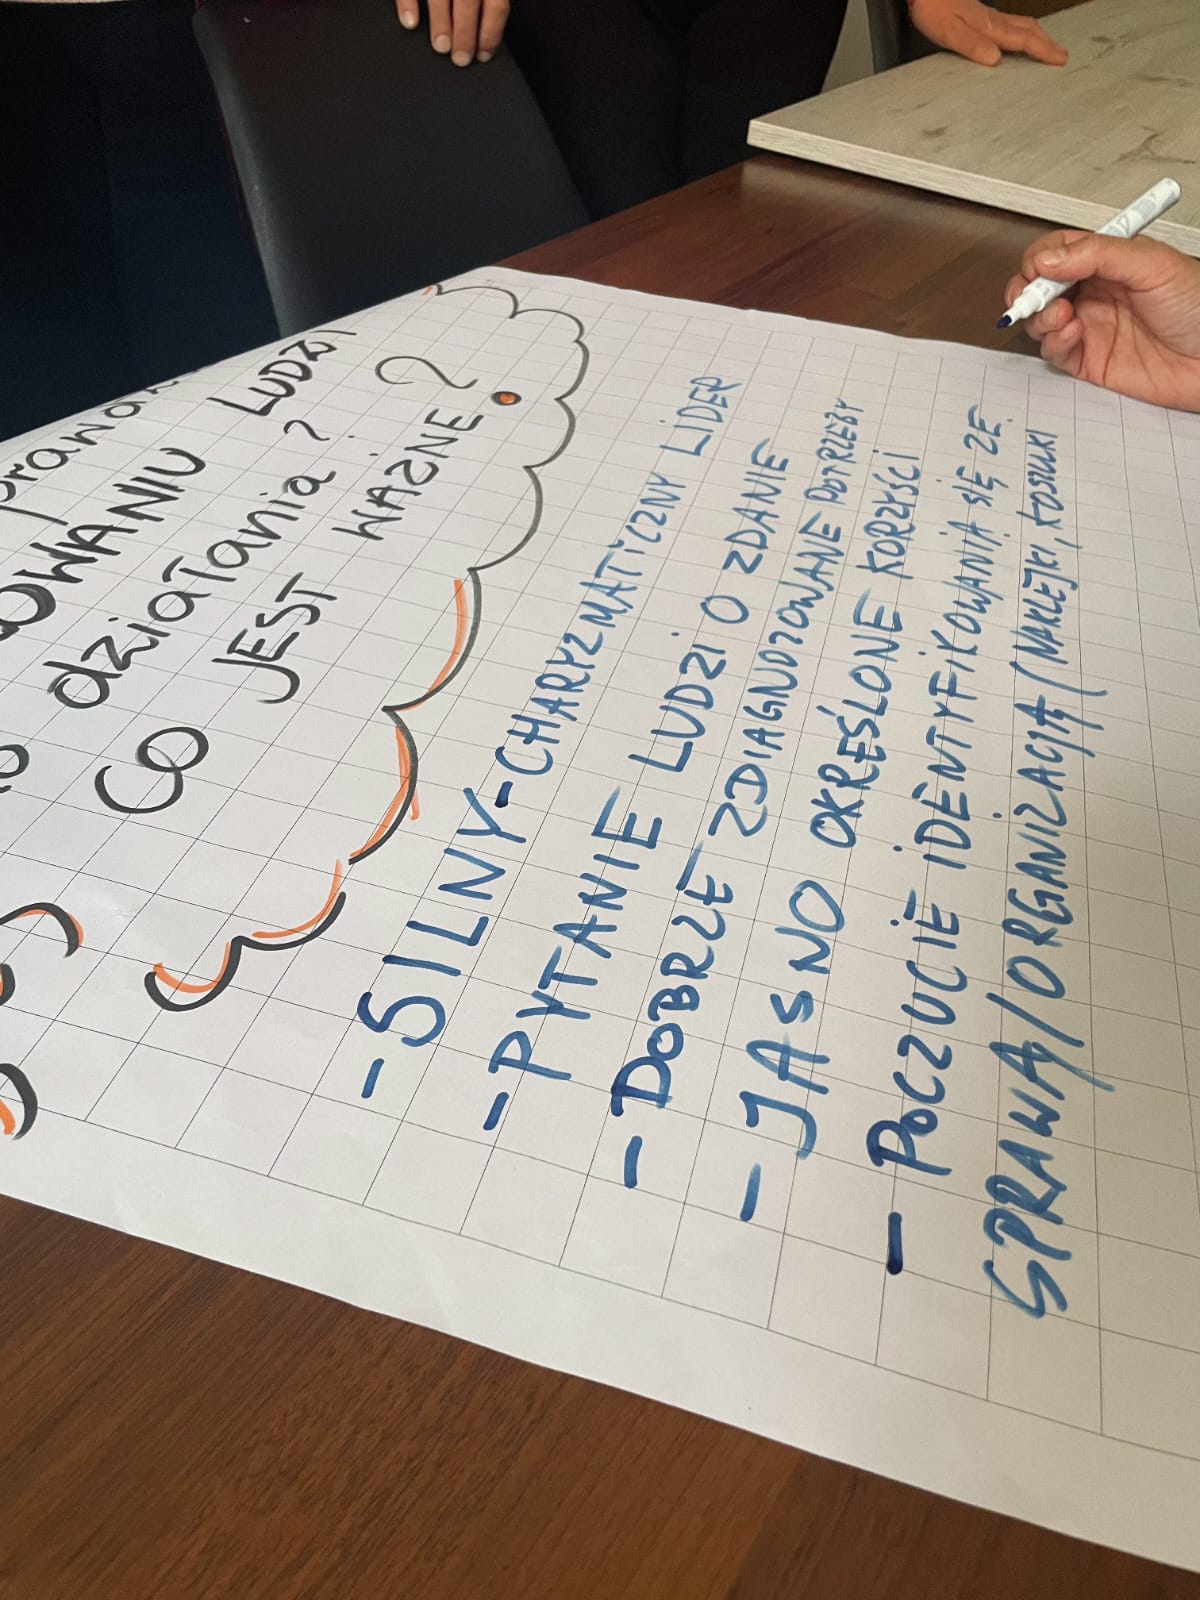 LUDZI
działania?
CO JEST WAŻNE?
- SILNY-CHARYZMATICZNY LIDER
- PYTANIE LUDZI O ZDANIE
- DOBRZE ZDIAGNOZOWANE POTRZEBY
- JASNO OKREŚLONE KORZYŚCI
- POCZUCIE IDENTYFIKOWANIA SIĘ ZE
SPRAWĄ/ORGANIZACJĄ (NAKLEJKI, KOSZULKI